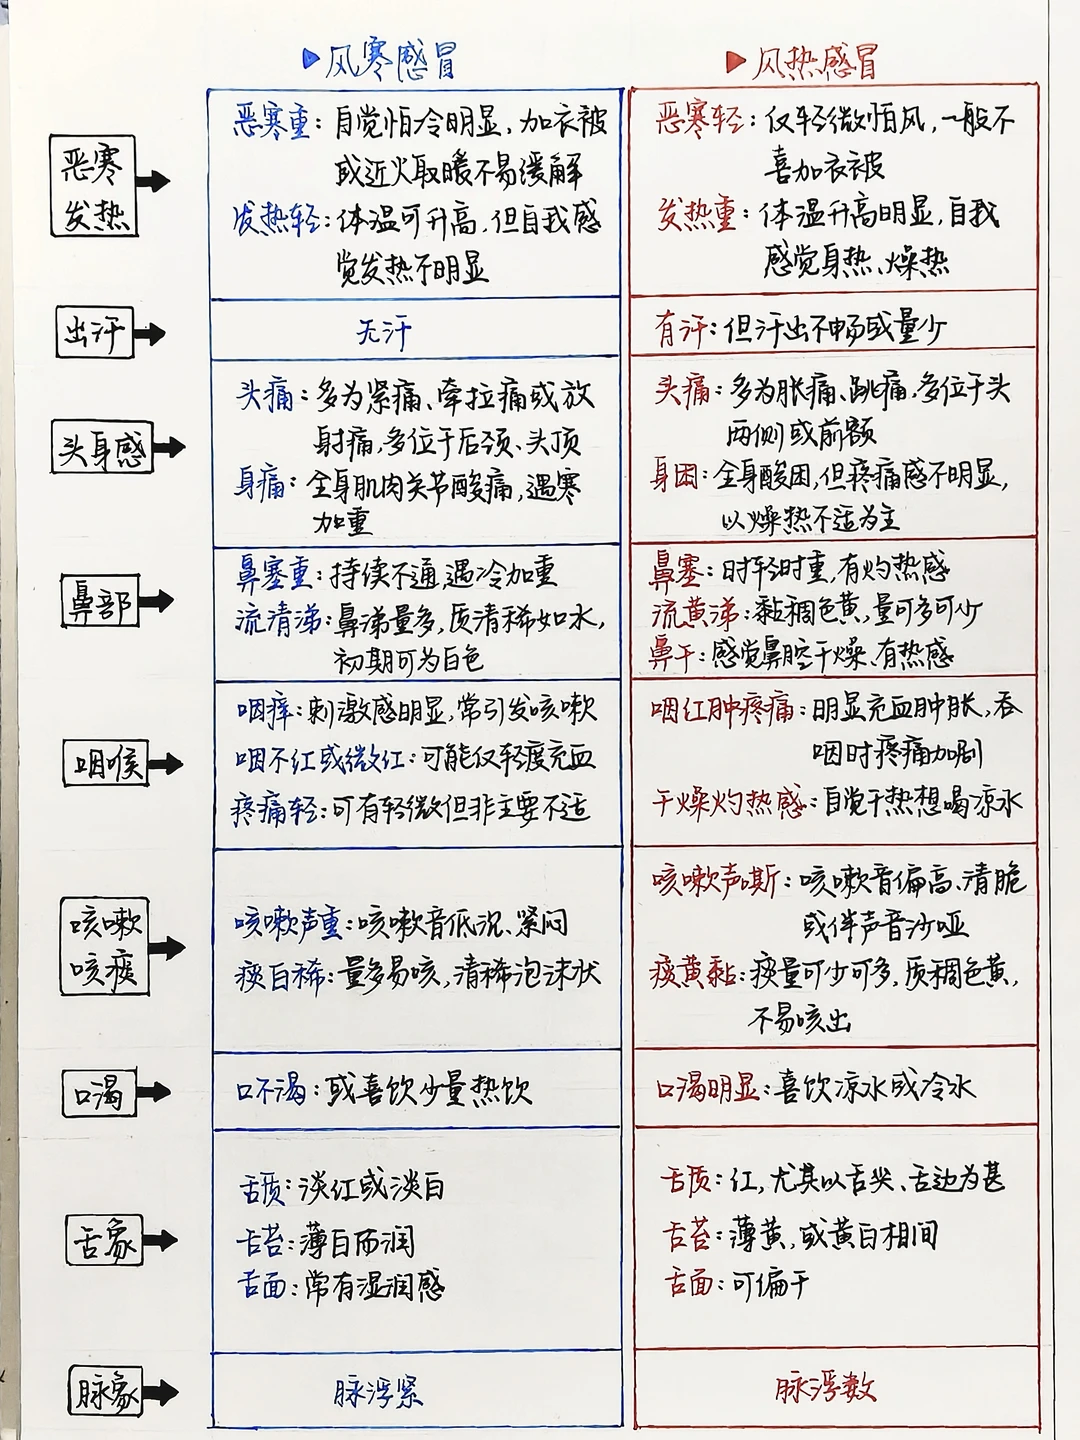 ▶风寒感冒
▶风热感冒
恶寒
发热
恶寒重：自觉怕冷明显，加衣被
或近火取暖不易缓解
发热轻：体温可升高，但自我感
觉发热不明显
恶寒轻：仅轻微怕风，一般不
喜加衣被
发热重：体温升高明显，自我
感觉身热、燥热
出汗
无汗
有汗：但汗出不畅或量少
头身感
头痛：多为紧痛、牵拉痛或放
射痛，多位于后颈、头顶
身痛：全身肌肉关节酸痛，遇寒
加重
头痛：多为胀痛、跳痛，多位于头
两侧或前额
身困：全身酸困，但疼痛感不明显，
以燥热不适为主
鼻部
鼻塞重：持续不通，遇冷加重
流清涕：鼻涕量多，质清稀如水，
初期可为白色
鼻塞：时轻时重，有灼热感
流黄涕：黏稠色黄，量可多可少
鼻干：感觉鼻腔干燥、有热感
咽喉
咽痒：刺激感明显，常引发咳嗽
咽不红或微红：可能仅轻度充血
疼痛轻：可有轻微但非主要不适
咽红肿疼痛：明显充血肿胀，吞
咽时疼痛加剧
干燥灼热感：自觉干热想喝凉水
咳嗽
咳痰
咳嗽声重：咳嗽音低沉、紧闷
痰白稀：量多易咳，清稀泡沫状
咳嗽声嘶：咳嗽音偏高、清脆
或伴声音沙哑
痰黄黏：痰量可少可多，质稠色黄，
不易咳出
口渴
口不渴：或喜饮少量热饮
口渴明显：喜饮凉水或冷水
舌象
舌质：淡红或淡白
舌苔：薄白而润
舌面：常有湿润感
舌质：红，尤其以舌尖、舌边为甚
舌苔：薄黄，或黄白相间
舌面：可偏干
脉象
脉浮紧
脉浮数